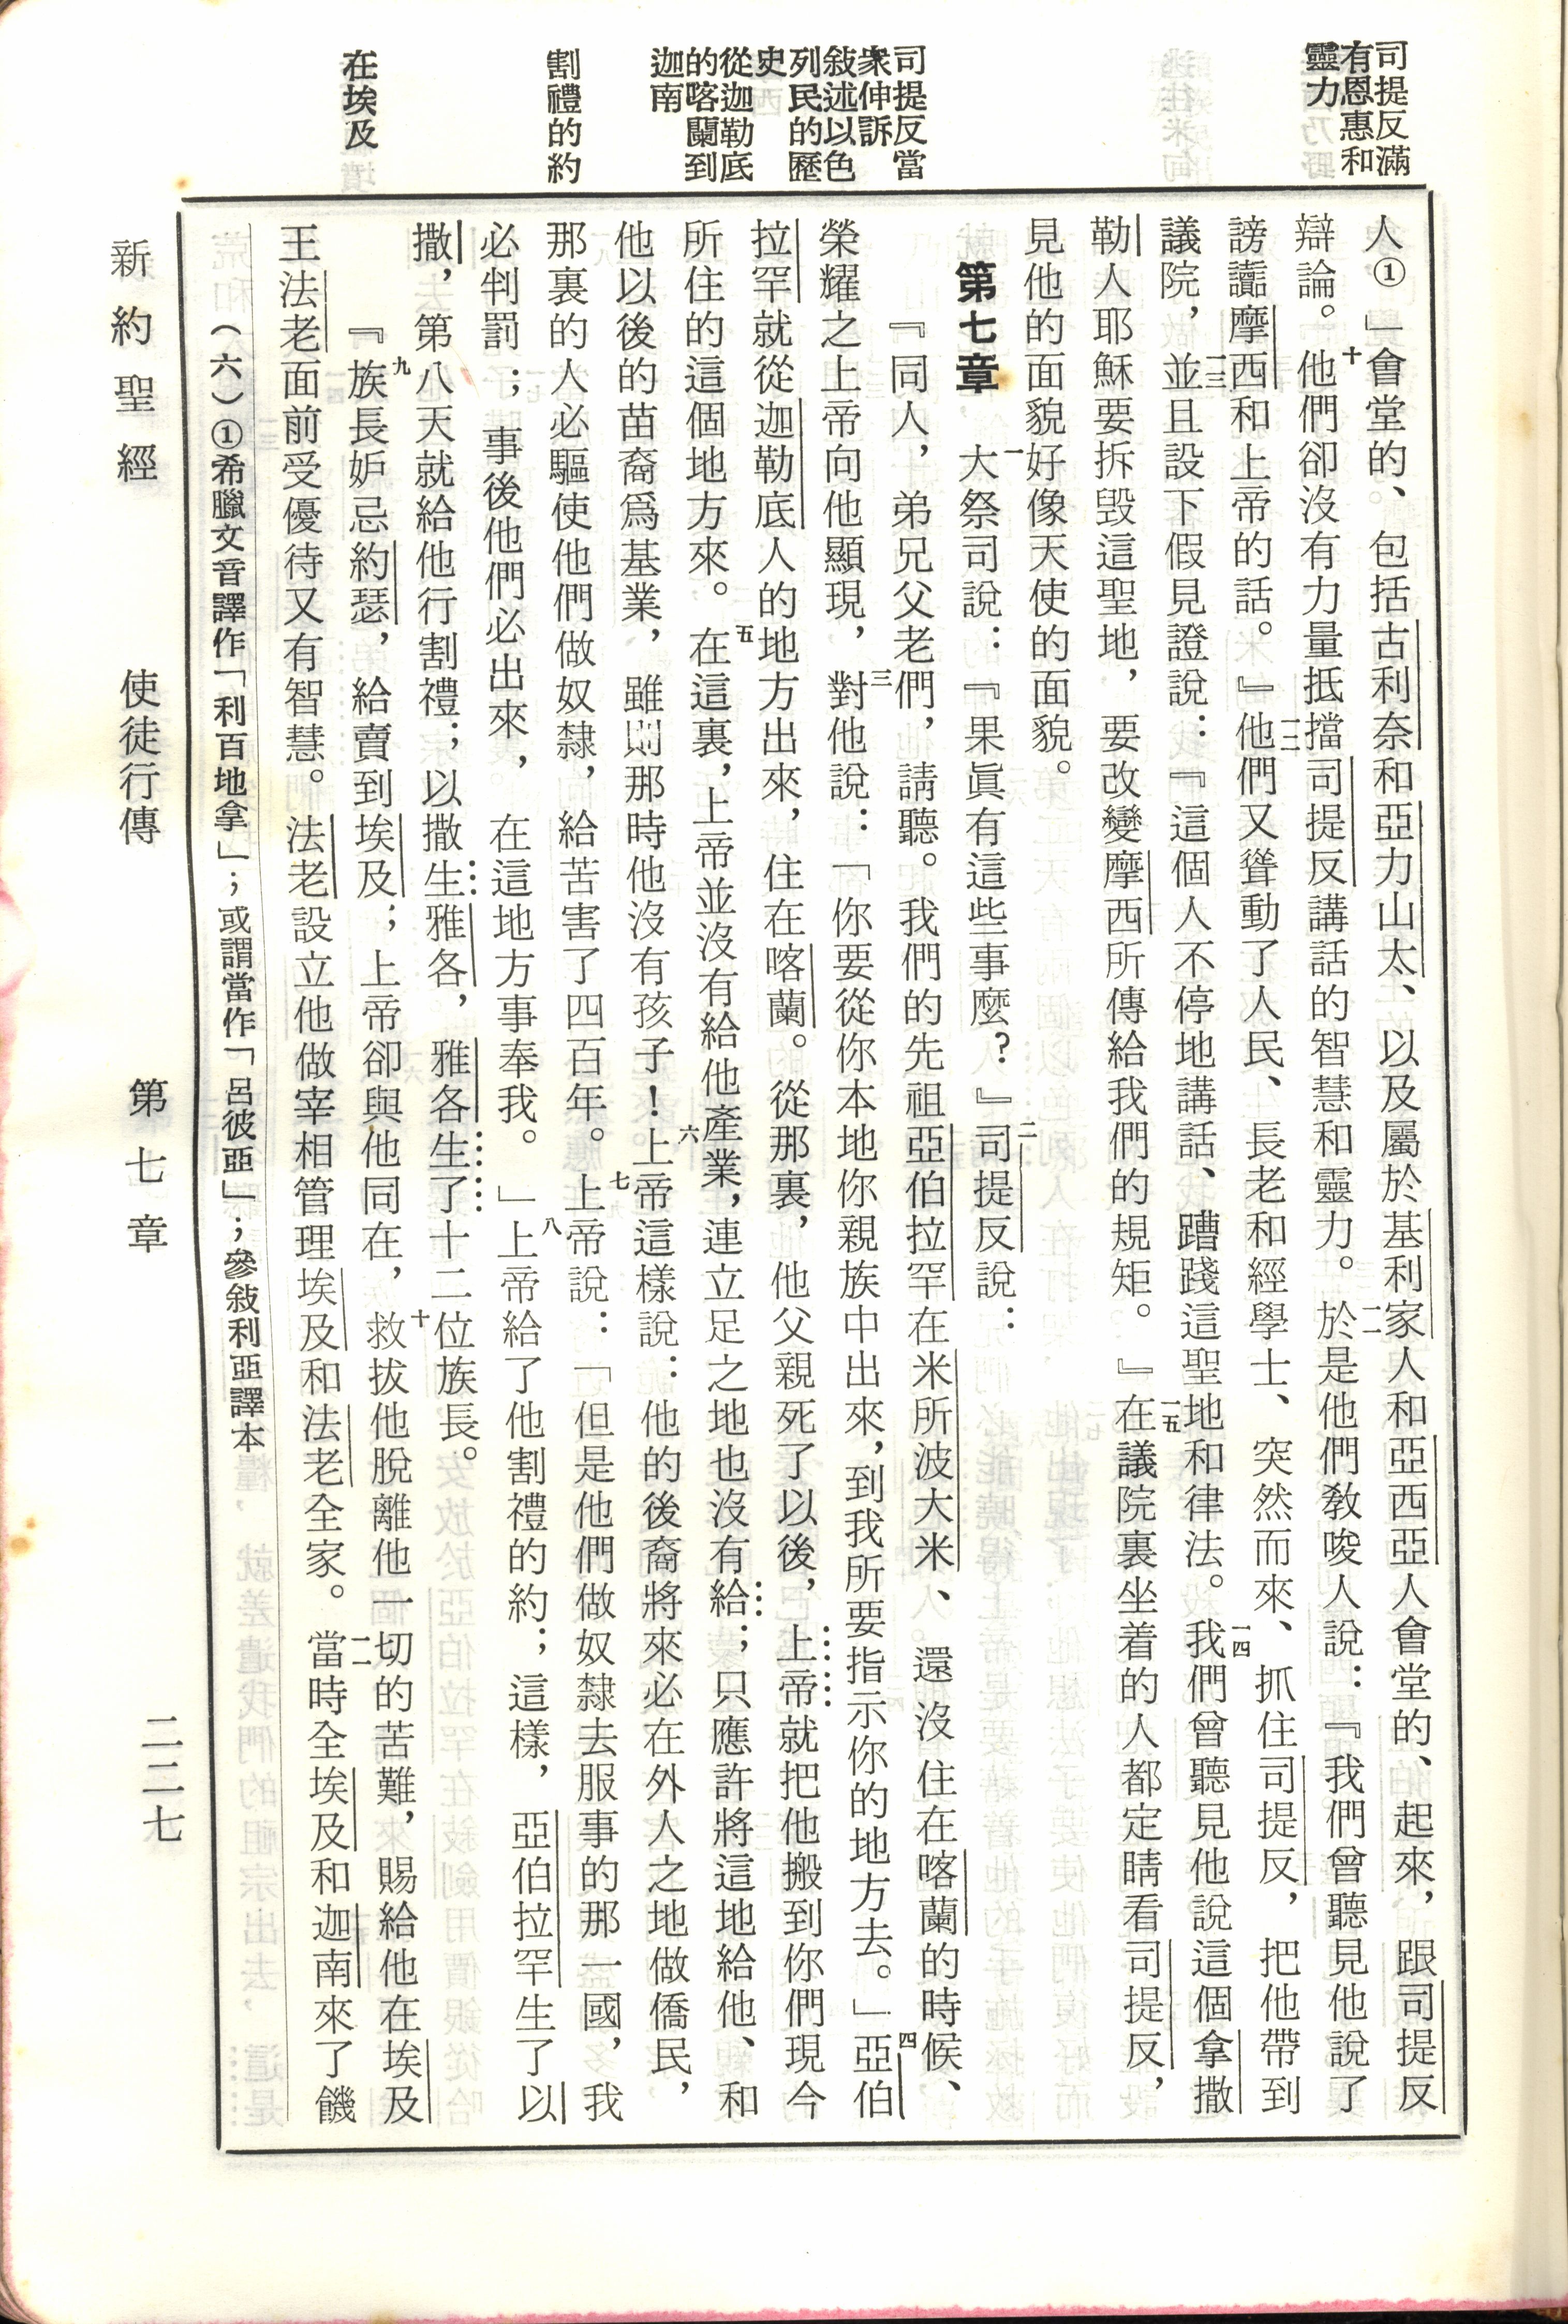 司提反滿
有恩惠和
靈力
司提反當
衆伸訴
敍述以色
列民的歷
史
從迦勒底
的喀蘭到
迦南
割禮的約
在埃及
人①」會堂的、包括古利奈和亞力山太、以及屬於基利家人和亞西亞人會堂的、起來，跟司提反
辯論。十他們卻沒有力量抵擋司提反講話的智慧和靈力。一一於是他們敎唆人說：『我們曾聽見他說了
謗讟摩西和上帝的話。』一二他們又聳動了人民、長老和經學士、突然而來、抓住司提反，把他帶到
議院，一三並且設下假見證說：『這個人不停地講話、蹧踐這聖地和律法。一四我們曾聽見他說這個拿撒
勒人耶穌要拆毀這聖地，要改變摩西所傳給我們的規矩。』一五在議院裏坐着的人都定睛看司提反，
見他的面貌好像天使的面貌。
第七章　一大祭司說：『果眞有這些事麼？』二司提反說：
『同人，弟兄父老們，請聽。我們的先祖亞伯拉罕在米所波大米、還沒住在喀蘭的時候、
榮耀之上帝向他顯現，三對他說：「你要從你本地你親族中出來，到我所要指示你的地方去。」四亞伯
拉罕就從迦勒底人的地方出來，住在喀蘭。從那裏，他父親死了以後，上帝就把他搬到你們現今
所住的這個地方來。五在這裏，上帝並沒有給他產業，連立足之地也沒有給；只應許將這地給他、和
他以後的苗裔爲基業，雖則那時他沒有孩子！六上帝這樣說：他的後裔將來必在外人之地做僑民，
那裏的人必驅使他們做奴隸，給苦害了四百年。七上帝說：「但是他們做奴隸去服事的那一國，我
必判罰；事後他們必出來，在這地方事奉我。」八上帝給了他割禮的約；這樣，亞伯拉罕生了以
撒，第八天就給他行割禮；以撒生雅各，雅各生了十二位族長。
『九族長妒忌約瑟，給賣到埃及；上帝卻與他同在，十救拔他脫離他一切的苦難，賜給他在埃及
王法老面前受優待又有智慧。法老設立他做宰相管理埃及和法老全家。一一當時全埃及和迦南來了饑
（六）①希臘文音譯作「利百地拿」；或謂當作「呂彼亞」；參敍利亞譯本
新約聖經　使徒行傳　第七章　二二七